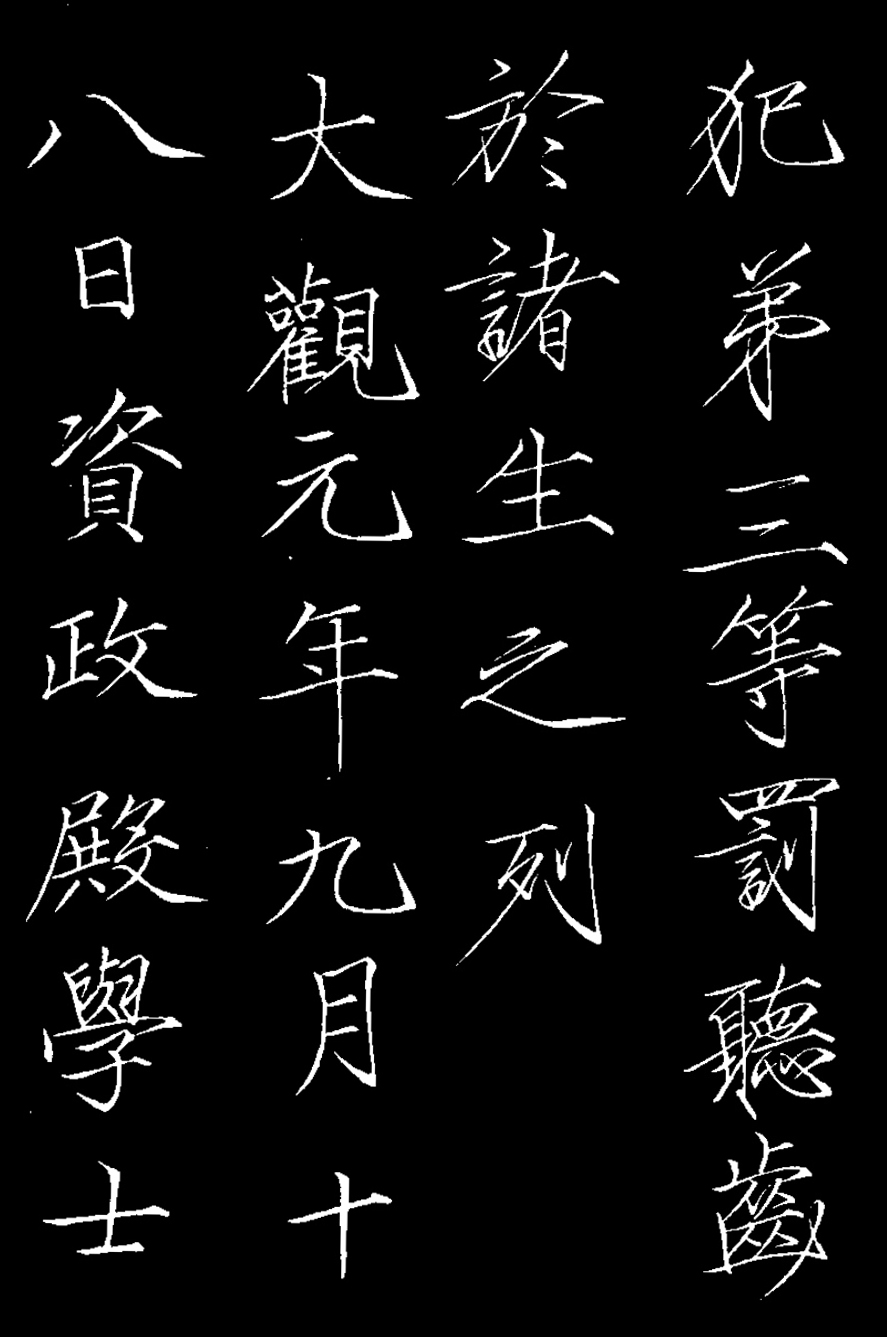 犯弟三等罰聽齒
於諸生之列
大觀元年九月十
八日資政殿學士